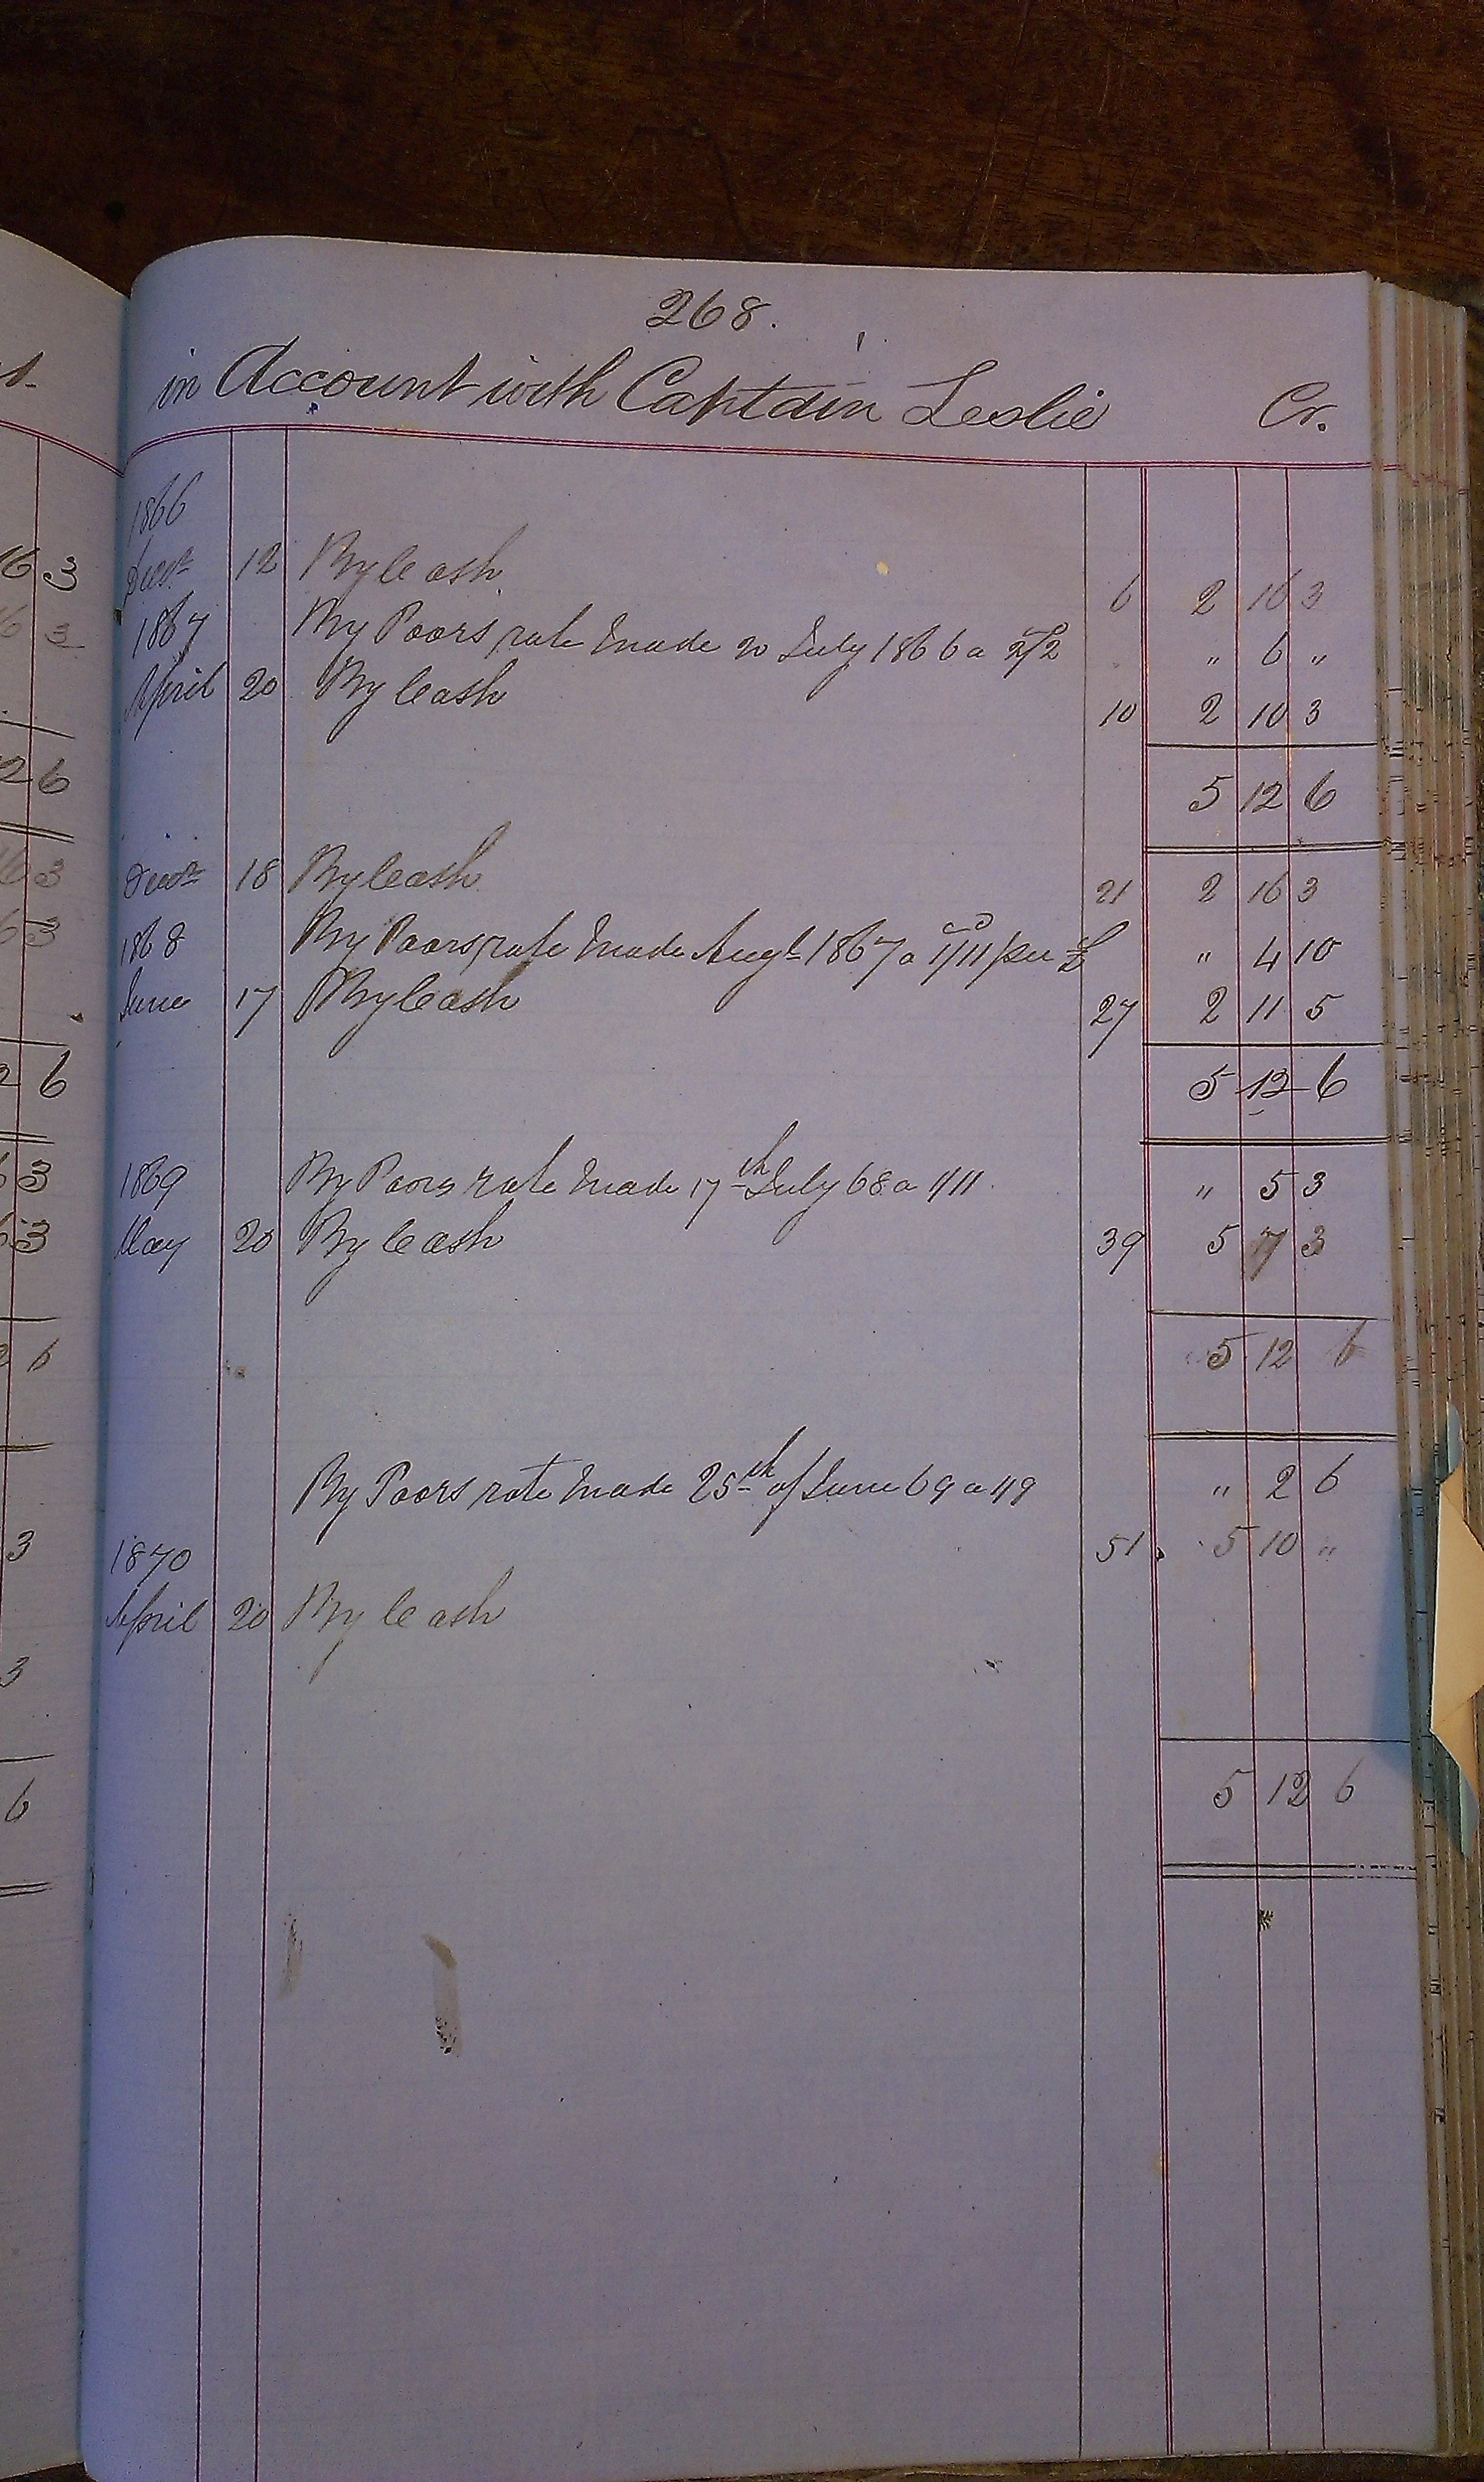 268.
in Account with Captain Leslie Cr.
1866
Decr 12 By Cash 6 2 16 3
1867 By Poors rate made 20 July 1866 a 2/2 " 6 "
April 20 By Cash 10 2 10 3
5 12 6
Decr 18 By Cash 21 2 16 3
1868 By Poors rate made Augt 1867 a 1/11 per £ " 4 10
June 17 By Cash 27 2 11 5
5 12 6
1869 By Poors rate made 17th July 68 a 1/11 " 5 3
May 20 By Cash 39 5 7 3
5 12 6
By Poors rate made 25th of June 69 a 1/9 " 2 6
1870 51 5 10 "
April 20 By Cash
5 12 6
16 3
16 3
2 6
16 3
6 3
2 6
6 3
6 3
2 6
3
3
6